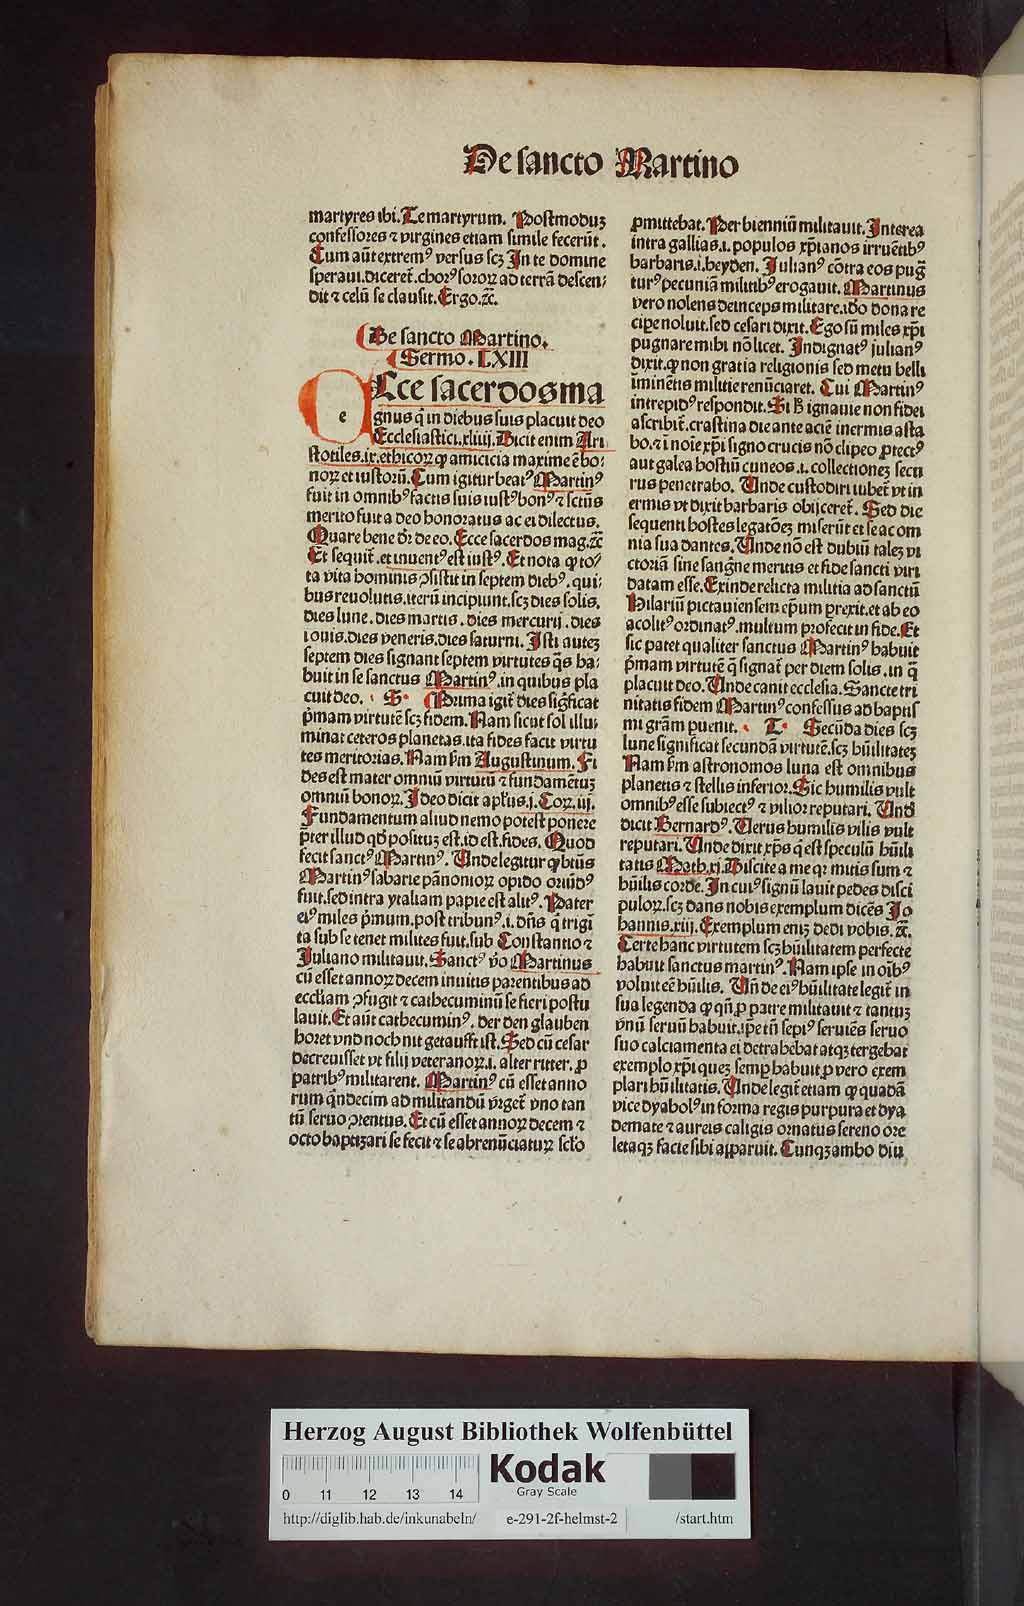 De sancto Martino
martyres ibi. Te martyrum. Postmoduꝫ
confessores ⁊ virgines etiam simile fecerūt.
Cum aūt extremꝰ versus scꝫ In te domine
speraui. diceret̄. chorꝰ sororꝝ ad terrā descen/
dit ⁊ celū se clausit. Ergo. ꝛc̄.
De sancto Martino.
Sermo. LXIII
Ecce sacerdos ma
e
gnus q̄ in diebus suis placuit deo
Ecclesiastici. xliiij. Dicit enim Ari
stotiles. ix. ethicoꝝ ꝙ amicicia maxime ē bo/
noꝝ et iustorū. Cum igitur beatꝰ Martinꝰ
fuit in omnibꝰ factis suis iustꝰ bonꝰ ⁊ sctūs
merito fuit a deo honoratus ac ei dilectus.
Quare bene dr̄ de eo. Ecce sacerdos mag. ꝛc̄
Et sequit̄. et inuentꝰ est iustꝰ. Et nota ꝙ to/
ta vita hominis ꝯsistit in septem diebꝰ. qui/
bus reuolutis. iterū incipiunt. scꝫ dies solis.
dies lune. dies martis. dies mercurij. dies
iouis. dies veneris. dies saturni. Isti auteꝫ
septem dies signant septem virtutes q̄s ha/
buit in se sanctus Martinꝰ. in quibus pla
cuit deo. S. Prima igit̄ dies sigficat
pͥmam virtutē scꝫ fidem. Nam sicut sol illu/
minat ceteros planetas. ita fides facit virtu
tes meritorias. Nam ẜm Augustinum. Fi
des est mater omniū virtutū ⁊ fundamētuꝫ
omniū bonoꝝ. Ideo dicit apłus. j. Coꝝ. iij.
Fundamentum aliud nemo potest ponere
pͥter illud qd̓ posituꝫ est. id est. fides. Quod
fecit sanctꝰ Martinꝰ. Unde legitur ꝙ btūs
Martinꝰ sabarie pānonioꝝ opido oriūdꝰ
fuit. sed intra ytaliam papie est alitꝰ. Pater
eiꝰ miles pͥmum. post tribunꝰ. i. dn̄s q̄ trigī
ta sub se tenet milites fuit. sub Constantio ⁊
Juliano militauit. Sanctꝰ v̓o Martinus
cū esset annoꝝ decem inuitis parentibus ad
eccłiam ꝯfugit ⁊ cathecuminū se fieri postu
lauit. Et aūt cathecuminꝰ. der den glauben
horet vnd noch nit getaufft ist. Sed cū cesar
decreuisset vt filij veteranoꝝ. i. alter ritter. ꝓ
patribꝰ militarent. Martinꝰ cū esset anno
rum qͥndecim ad militandū vrget̄ vno tan
tū seruo ꝯtentus. Et cū esset annoꝝ decem ⁊
octo baptizari se fecit ⁊ se abrenūciatuꝝ sclo
ꝑmittebat. Per bienniū militauit. Interea
intra gallias. i. populos xp̄ianos irruētibꝰ
barbaris. i. heyden. Julianꝰ cōtra eos puḡ
turꝰ pecuniā militibꝰ erogauit. Martinus
vero nolens deinceps militare. id̓o dona re
cipe noluit. sed cesari dixit. Ego sū miles xp̄i
pugnare mihi nō licet. Indignatꝰ julianꝰ
dixit. ꝙ non gratia religionis sed metu belli
īminētis militie renūciaret. Cui Martinꝰ
intrepidꝰ respondit. Si hͦ ignauie non fidei
ascribit̄. crastina die ante aciē inermis asta
bo. ⁊ ī noīe xp̄i signo crucis nō clipeo ꝓtectꝰ
aut galea hostiū cuneos. i. collectioneꝫ secu
rus penetrabo. Unde custodiri iubet̄ vt in
ermis vt dixit barbaris obijceret̄. Sed die
sequenti hostes legatōeꝫ miserūt et se ac om
nia sua dantes. Unde nō est dubiū taleꝫ vi
ctoriā sine sangīne meritis et fide sancti viri
datam esse. Exinde relicta militia ad sanctū
Hilariū pictauiensem ep̄um ꝑrexit. et ab eo
acolitꝰ ordinatꝰ. multum profecit in fide. Et
sic patet qualiter sanctus Martinꝰ habuit
pͥmam virtutē q̄ signat̄ per diem solis. in q̄
placuit deo. Unde canit ecclesia. Sancte tri
nitatis fidem Martinꝰ confessus ad baptis
mi grām ꝑuenit. T. Secūda dies scꝫ
lune significat secundā virtutē. scꝫ hūilitateꝫ
Nam ẜm astronomos luna est omnibus
planetis ⁊ stellis inferior. Sic humilis vult
omnibꝰ esse subiectꝰ ⁊ vilior reputari. Und̓
dicit Bernardꝰ. Uerus humilis vilis vult
reputari. Unde dixit xp̄s q̄ est speculū hūili
tatis Math. xj. Discite a me qꝛ mitis sum ⁊
hūilis corde. In cuiꝰ signū lauit pedes disci
puloꝝ. scꝫ dans nobis exemplum dicēs Jo
hannis. xiij. Exemplum eniꝫ dedi vobis. ꝛc̄.
Certe hanc virtutem scꝫ hūilitatem perfecte
habuit sanctus martinꝰ. Nam ipse in oībꝰ
voluit eē hūilis. Un̄ de eiꝰ hūilitate legit̄ in
sua legenda ꝙ qn̄ ꝓ patre militauit ⁊ tantuꝫ
vnū seruū habuit. ip̄e tn̄ sepiꝰ seruiēs seruo
suo calciamenta ei detrahebat atqꝫ tergebat
exemplo xp̄i queꝫ semꝑ habuit ꝓ vero exem
plari hūilitatis. Unde legit̄ etiam ꝙ quadā
vice dyabolꝰ in forma regis purpura et dya
demate ⁊ aureis caligis ornatus sereno ore
letaqꝫ facie sibi apparuit. Cunqꝫ ambo diu
Herzog August Bibliothek Wolfenbüttel
Kodak
Gray Scale
0 11 12 13 14
http://diglib.hab.de/inkunabeln/ e-291-2f-helmst-2 /start.htm